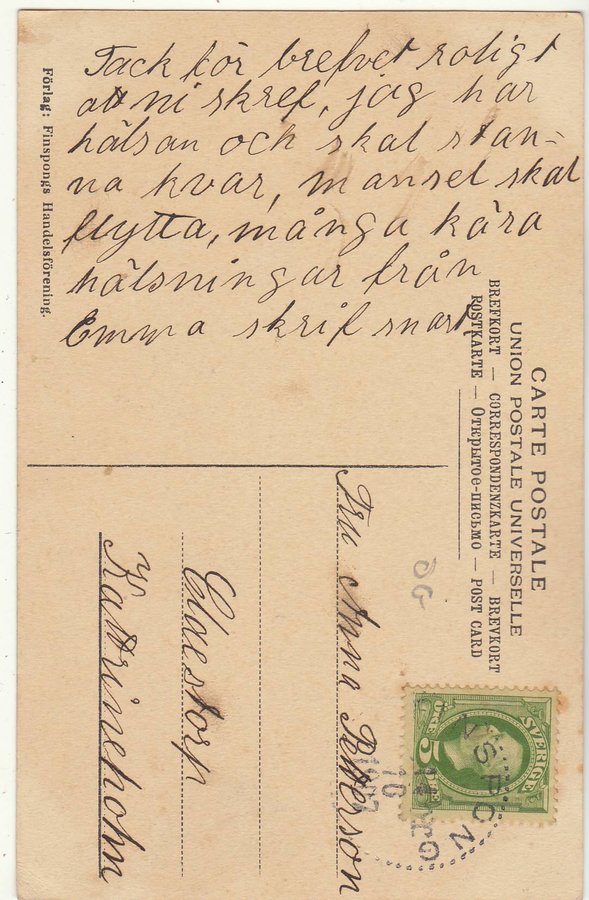 Tack för brefvet roligt
att ni skref, jag har
hälsan och skal stan=
na kvar, mansel skal
flytta, många kära
hälsningar från
Emma skrif snart
Förlag: Finspongs Handelsförening.
CARTE POSTALE
UNION POSTALE UNIVERSELLE
BREFKORT — CORRESPONDENZKARTE — BREVKORT
POSTKARTE — Открытое-письмо — POST CARD
Fru Anna Petterson
Katrineholm
SVERIGE
5
FINSPONG
16
1907